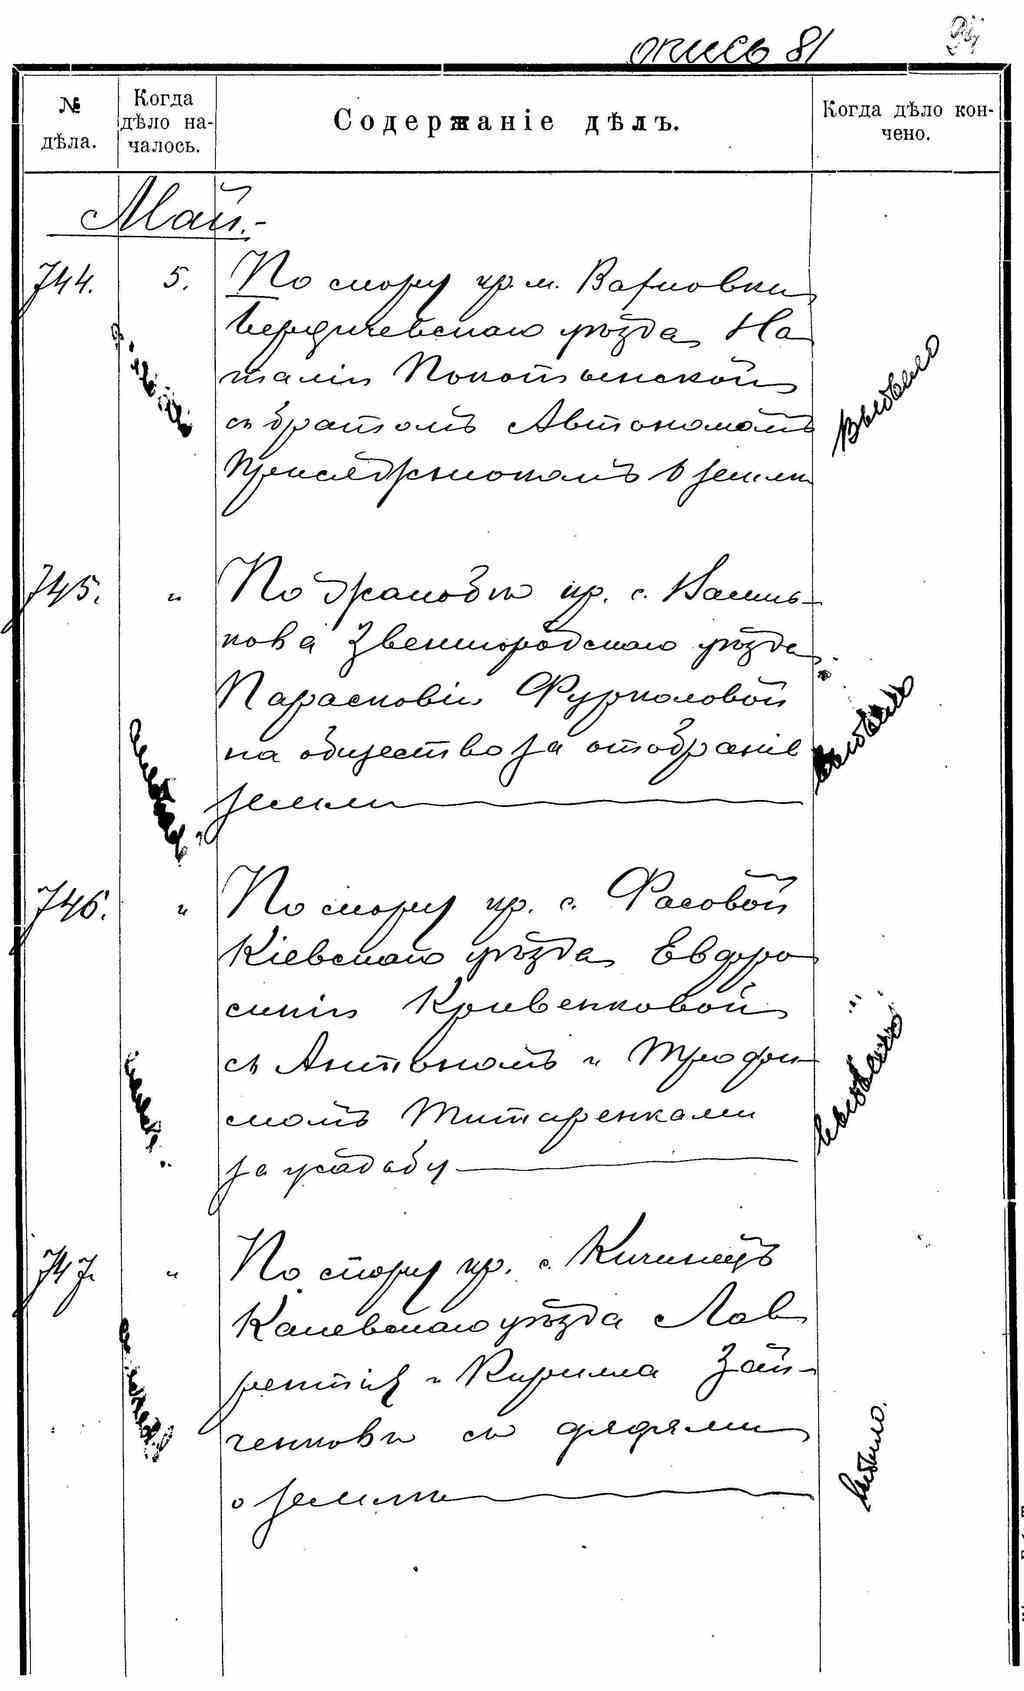 опись 81
№ дѣла.
Когда дѣло началось.
Содержаніе дѣлъ.
Когда дѣло кончено.
Май.-
744. 5. По спору кр. м.
Бердичевскаго уѣзда На
таліи
съ братомъ Автономомъ
о землѣ
Выбыло
745. " По жалобѣ кр. с. Násиль-
кова Звенигородскаго уѣзда
Парасковіи Фурколовой
на общество за отобраніе
земли
выбыло
746. " По спору кр. с. Фасовой
Кіевскаго уѣзда Евфро
синіи Кривенковой
съ Антономъ и Трофи
момъ Титаренками
за усадьбу
выбыло
747. " По спору кр. с. Кичинецъ
Каневскаго уѣзда Лав
рентія и Кирилла Зай-
ченковъ съ дядями
о землѣ
выбыло.